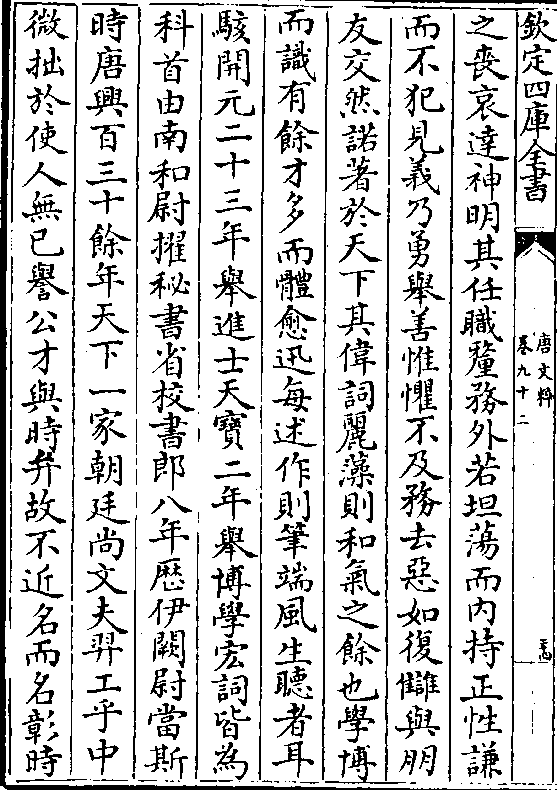 欽定四庫全書
唐文粹
卷九十二
之喪哀達神明其任職釐務外若坦蕩而内持正性謙
而不犯見義乃勇舉善惟懼不及務去惡如復讎與朋
友交然諾著於天下其偉詞麗藻則和氣之餘也學博
而識有餘才多而體愈迅每述作則筆端風生聽者耳
駭開元二十三年舉進士天寶二年舉博學宏詞皆為
科首由南和尉擢秘書省校書郎八年歴伊闕尉當斯
時唐興百三十餘年天下一家朝廷尚文夫羿工乎中
微拙於使人無已譽公才與時并故不近名而名彰時